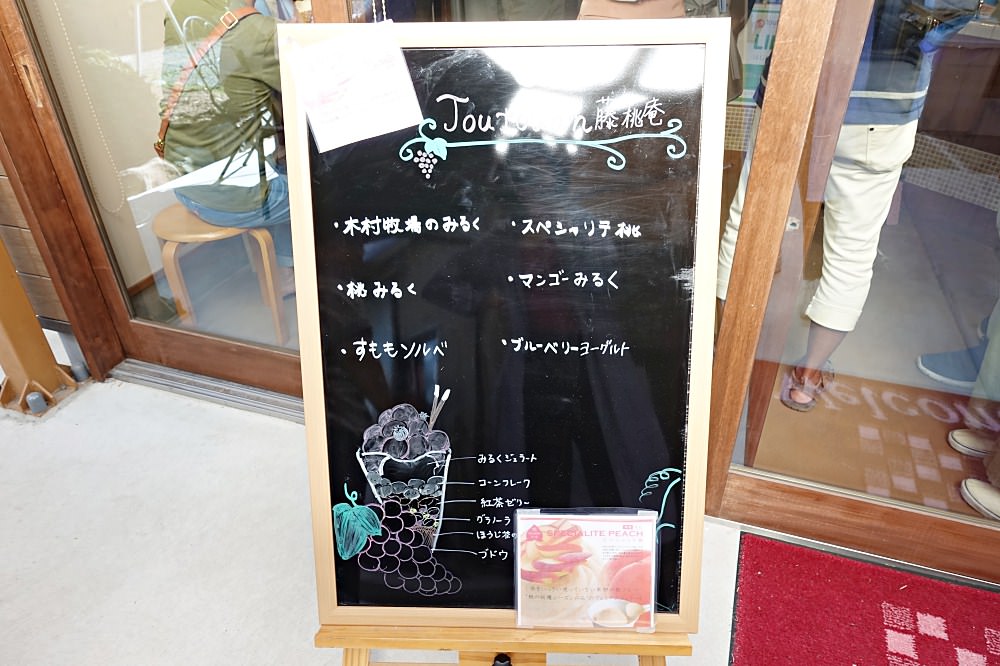 藤桃庵
・木村牧場のみるく
・スペシャリテ桃
・桃みるく
・マンゴーみるく
・すももソルベ
・ブルーベリーヨーグルト
みるくジェラート
コーンフレーク
紅茶ゼリー
グラノーラ
ほうじ茶の
ブドウ
SPECIALITE PEACH
elcom